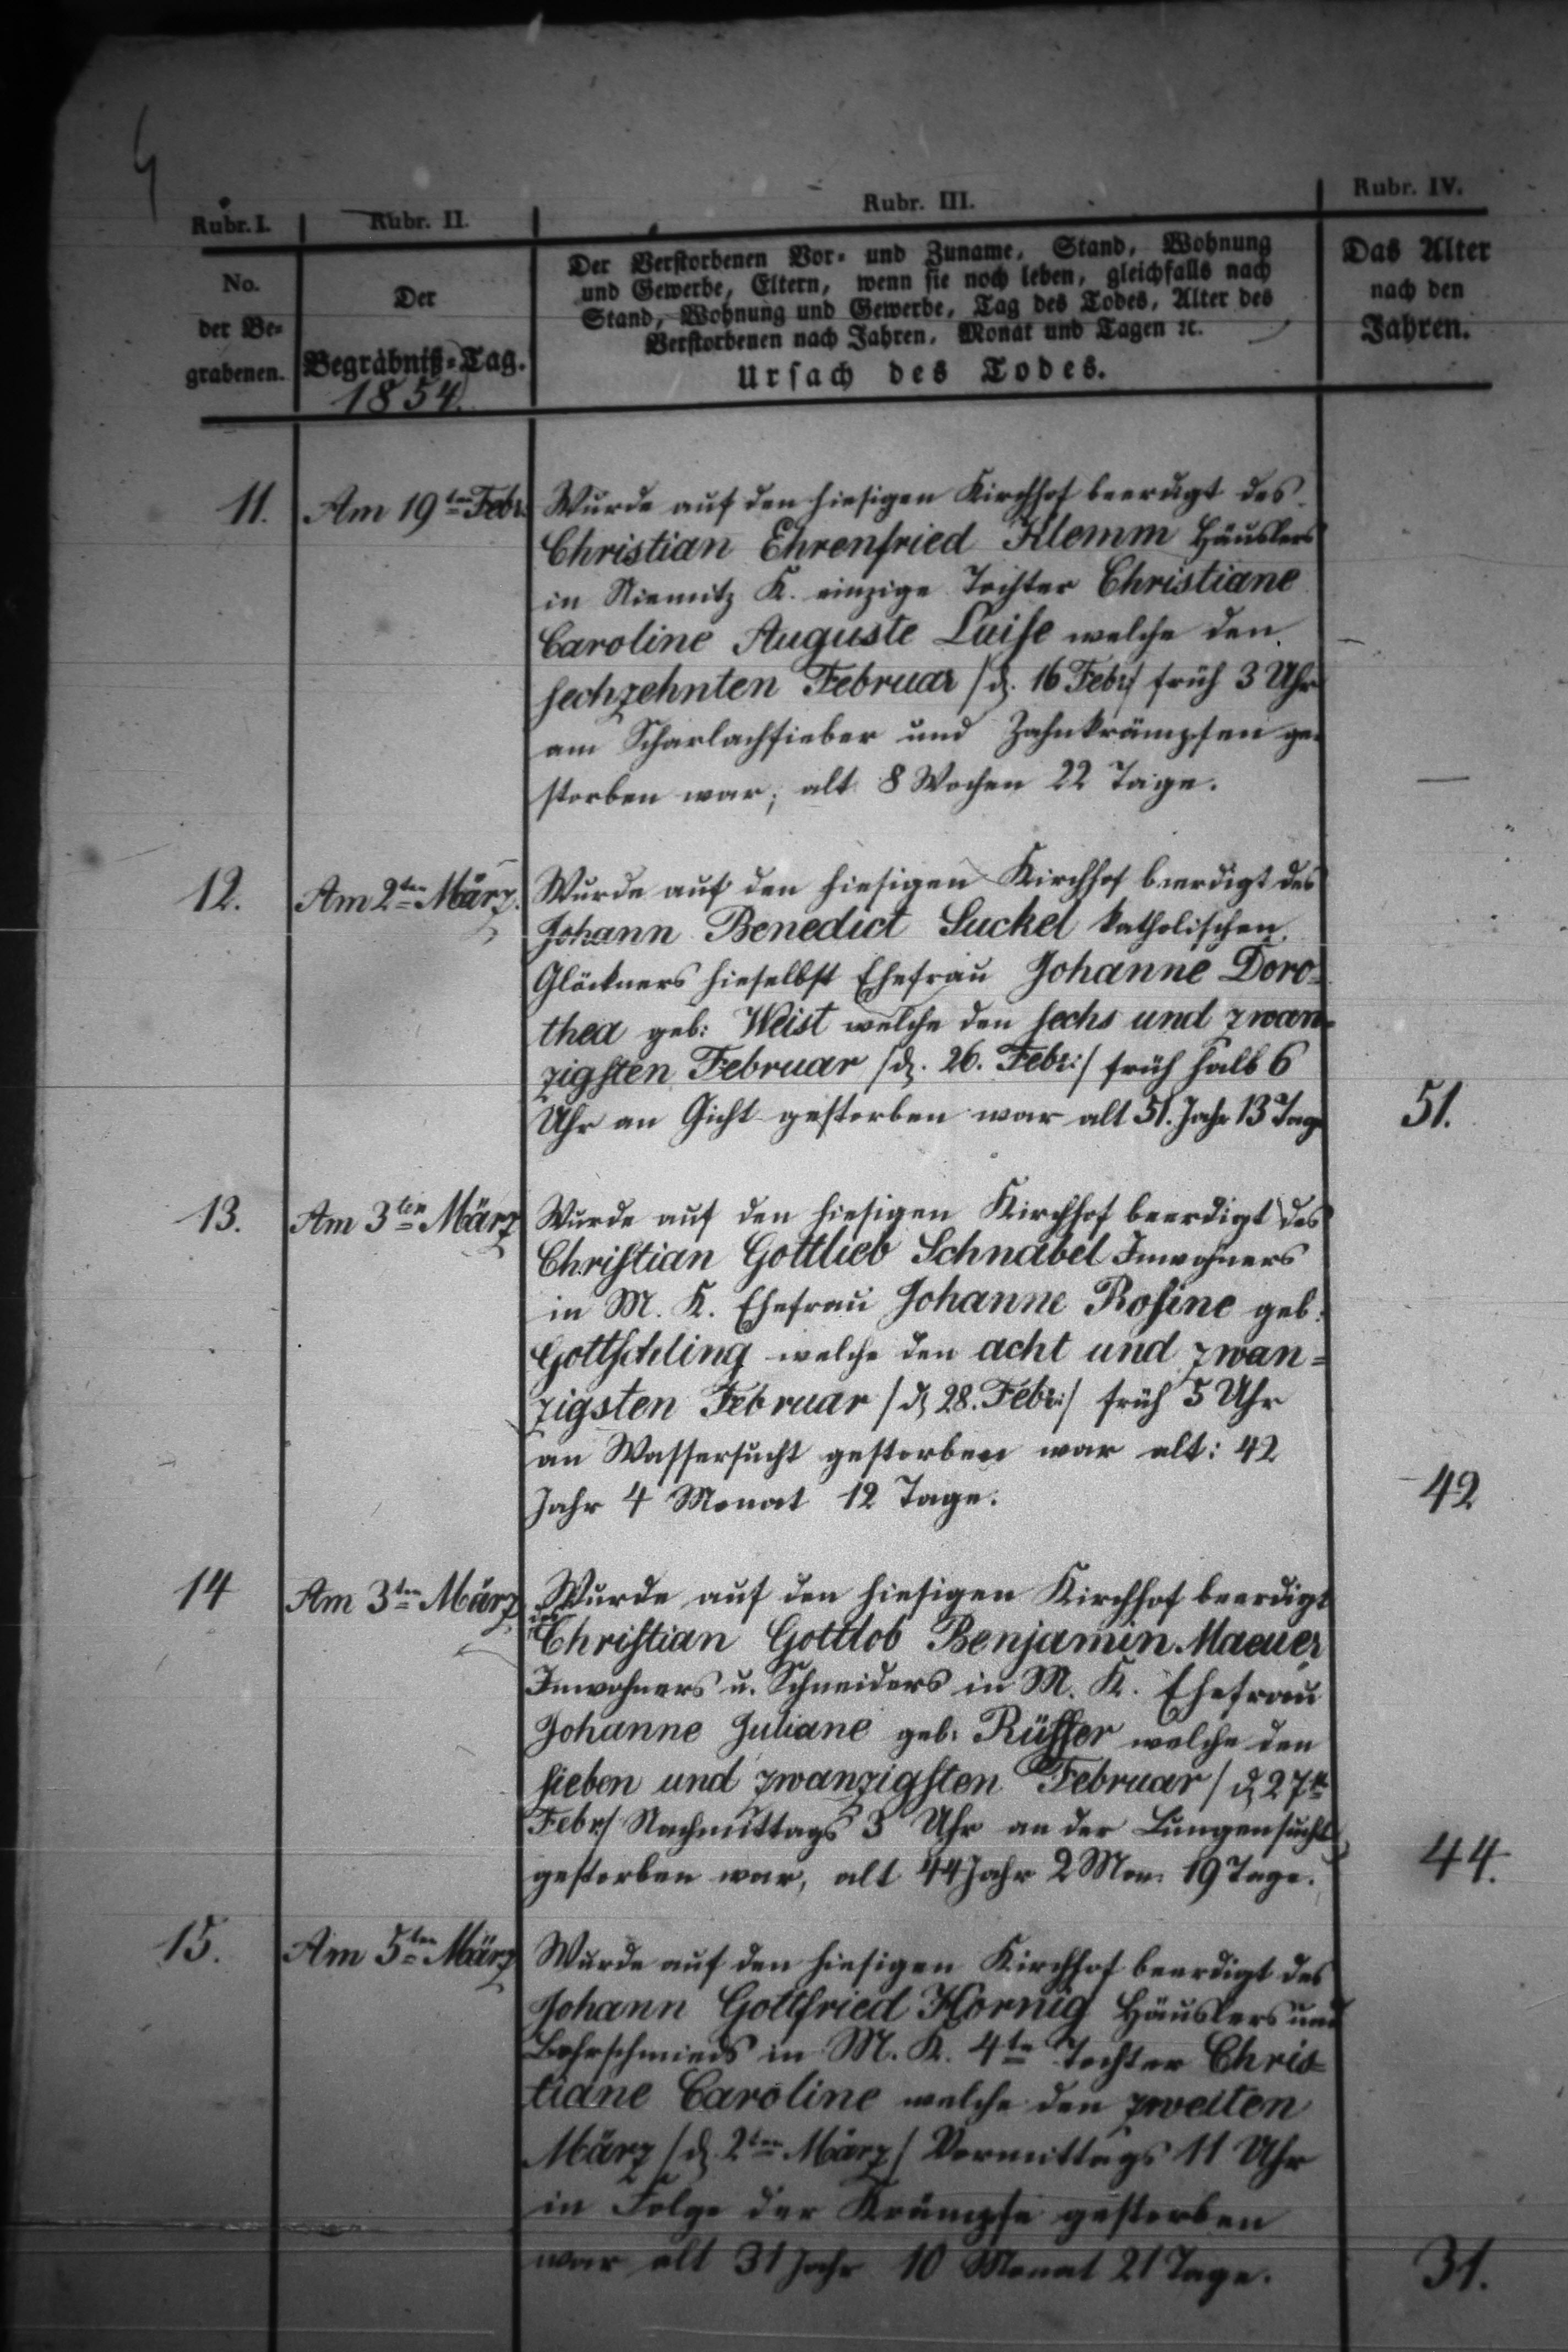 Rubr. I.
Rubr. II.
Rubr. III.
Rubr. IV.
No.
der Be-
grabenen.
Der
Begräbniß-Tag.
1854.
Der Verstorbenen Vor- und Zuname, Stand, Wohnung
und Gewerbe, Eltern, wenn sie noch leben, gleichfalls nach
Stand, Wohnung und Gewerbe, Tag des Todes, Alter des
Verstorbenen nach Jahren, Monat und Tagen ꝛc.
Ursach des Todes.
Das Alter
nach den
Jahren.
11.
Am 19ten Febr.
Wurde auf den hiesigen Kirchhof beerdigt des
Christian Ehrenfried Klemm Häuslers
in K. einzige Tochter Christiane
Caroline Auguste Luise welche den
sechzehnten Februar /d. 16 Febr:/ früh 3 Uhr
am Scharlachfieber und Zahnkrämpfen ge-
storben war; alt 8 Wochen 22 Tage.
—
12.
Am 2ten März.
Wurde auf den hiesigen Kirchhof beerdigt des
Johann Benedict Suckel katholischen
Glöckners hieselbst Ehefrau Johanne Doro-
thea geb: Weist welche den sechs und zwan-
zigsten Februar /d. 26. Febr:/ früh halb 6
Uhr an Gicht gestorben war alt 51. Jahr 13 Tage
51.
13.
Am 3ten März
Wurde auf den hiesigen Kirchhof beerdigt des
Christian Gottlieb Schnabel Inwohners
in M. K. Ehefrau Johanne Rosine geb:
Gottschling welche den acht und zwan=
zigsten Februar /d 28. Febr:/ früh 5 Uhr
an Wassersucht gestorben war alt: 42
Jahr 4 Monat 12 Tage.
42
14
Am 3ten März
Wurde auf den hiesigen Kirchhof beerdigt
des
Christian Gottlob Benjamin Maeuer
Inwohners u. Schneiders in M. K. Ehefrau
Johanne Juliane geb: Rüffer welche den
sieben und zwanzigsten Februar / d 27ten
Febr:/ Nachmittags 3 Uhr an der Lungensucht
gestorben war, alt 44 Jahr 2 Mon. 19 Tage.
44.
15.
Am 5ten März
Wurde auf den hiesigen Kirchhof beerdigt des
Johann Gottfried Hornig Häuslers und
Bohrschmieds in M. K. 4te Tochter Chris-
tiane Caroline welche den zweiten
März /d. 2ten März/ Vormittags 11 Uhr
in Folge der Krämpfe gestorben
war alt 31 Jahr 10 Monat 21 Tage.
31.